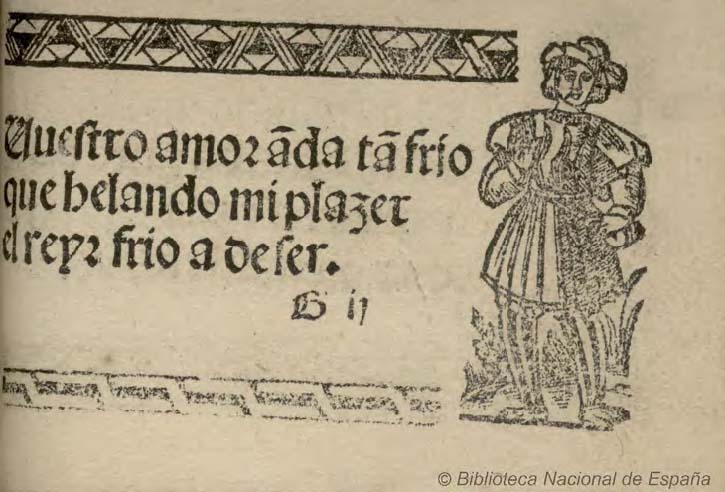 Nuestro amor ãda tã frio
que helando mi plazer
el reyr frio a de ser.
G ij
© Biblioteca Nacional de España